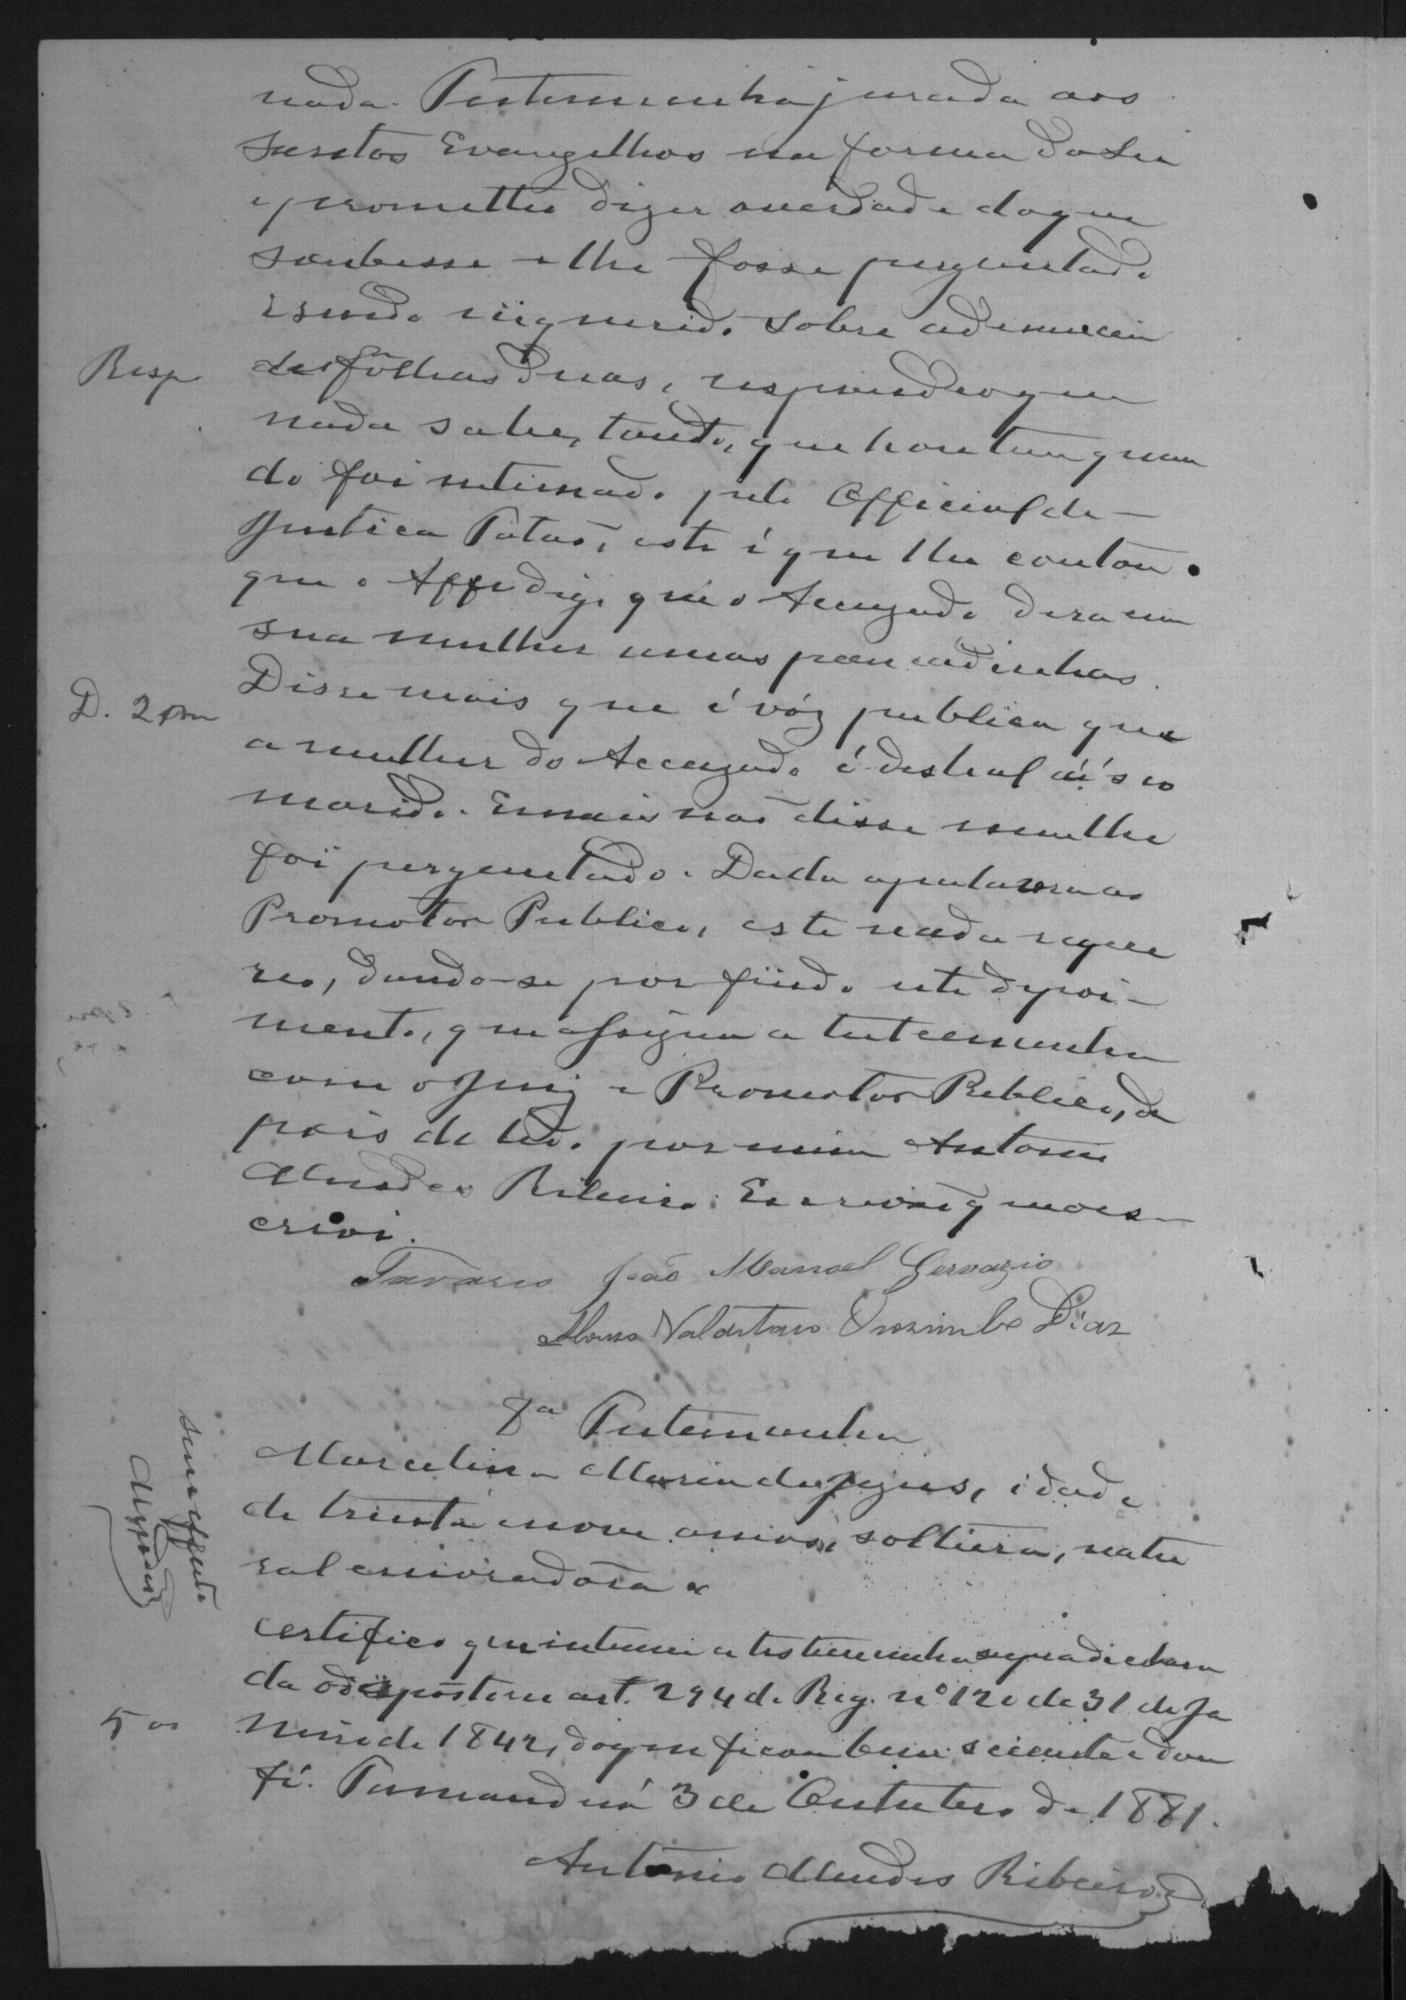 nada. Testemunha jurada aos
Santos Evangelhos na forma da Lei
e prometteo dizer a verdade do que
soubesse e lhe fosse perguntado.
E sendo inquerido sobre a denuncia
Resp
de folhas duas, respondeo que
nada sabe, tanto, que hontem quan
do foi intimado pelo Official de
Justiça Tatão, este é que lhe contou
que o Affidigo que o Accuzado dera em
sua mulher umas pancadinhas.
D. 2
Disse mais que é vóz publica que
a mulher do Accuzado é desleal a seo
marido. E mais não disse nem lhe
foi perguntado. Dada a palavra ao
Promotor Publico, este nada reque
reo, dando-se por findo este depoi-
mento, que assigna a testemunha
com o Juiz e Promotor Publico, de
pois de lido por mim Antonio
Mendes Ribeiro. Escrivão que o es-
crivi.
Tavares João Manoel Gervazio
Orozimbo Diaz
8ª Testemunha
sem effeito
Marcelina Maria de Jezus, idade
de trinta e nove annos, solteira, natu
ral e moradora
Certifico que intimei a testemunha supra declara
da o disposto no art. 294 do Reg. nº 120 de 31 de Ja
neiro de 1842, do que ficou bem sciente e dou
fé. Tamandua 3 de Outubro de 1881.
Antonio Mendes Ribeiro